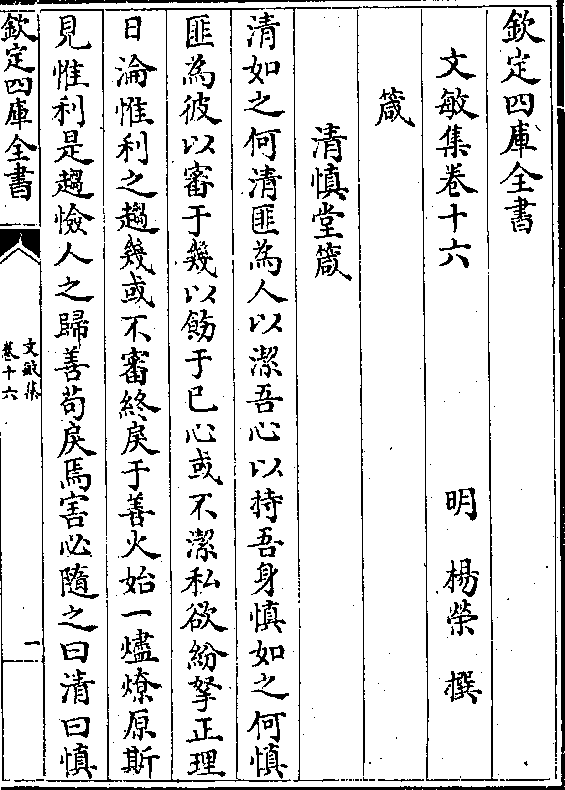 欽定四庫全書
文敏集卷十六
明　楊榮　撰
箴
清慎堂箴
清如之何清匪為人以潔吾心以持吾身慎如之何慎
匪為彼以審于幾以飭于已心或不潔私欲紛拏正理
日淪惟利之趨幾或不審終戾于善火始一燼燎原斯
見惟利是趨憸人之歸善茍戾焉害必隨之曰清曰慎
欽定四庫全書
文敏集
卷十六
一